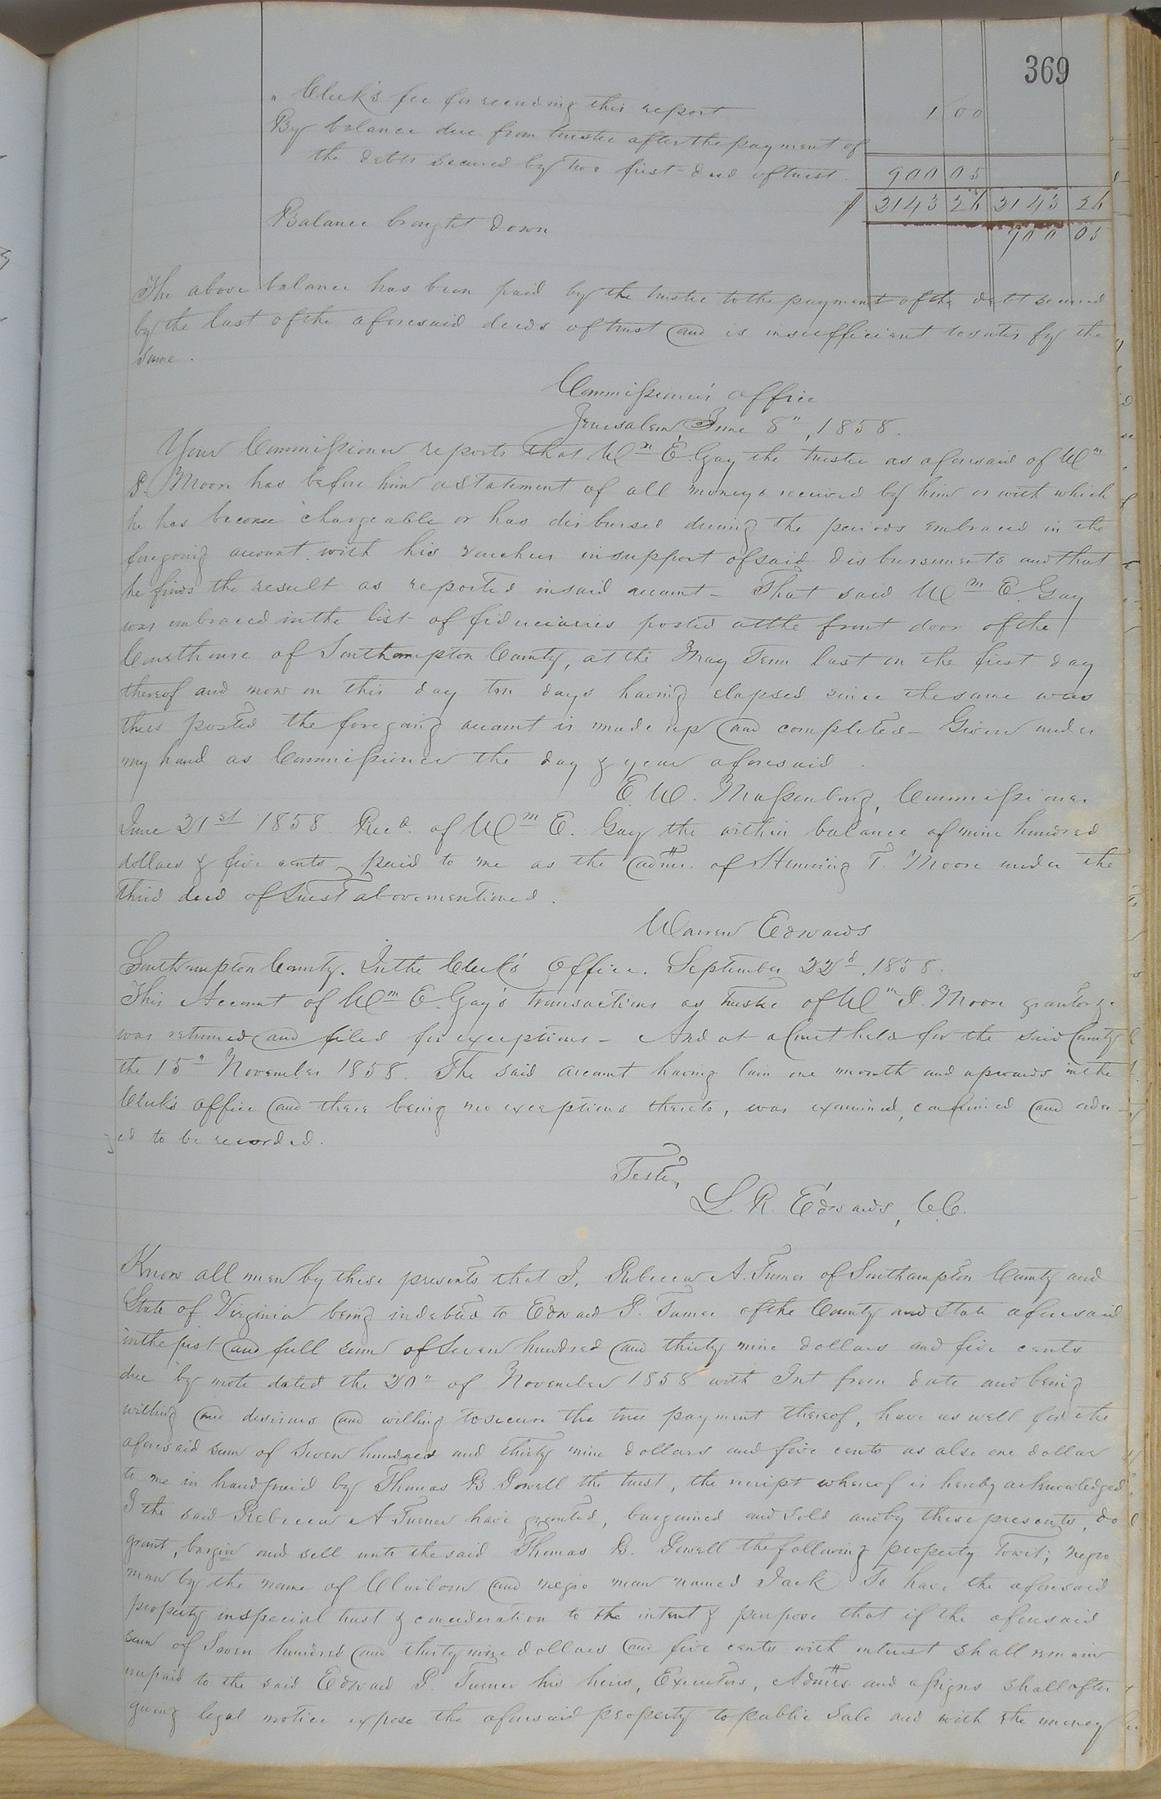 369
" Clerk's fee for recording this report 1 00
By balance due from trustee after the payment of
the debts secured by two first deed of trust 900 05
2143 26 2143 26
Balance brought down 900 05
The above balance has been paid by the trustee to the payment of the debt secured
by the last of the aforesaid deeds of trust and is insufficient to satisfy the
same.
Commissioner's office
Jerusalem June 8", 1858.
Your Commissioner reports that Wm E. Gay the trustee as aforesaid of Wm
P. Moore has before him a statement of all moneys received by him or with which
he has become chargeable or has disbursed during the periods embraced in the
foregoing account with his vouchers in support of said disbursements and that
he finds the result as reported in said account - That said Wm E. Gay
was embraced in the list of fiduciaries posted at the front door of the
Courthouse of Southampton County, at the May Term last on the first day
thereof and now on this day ten days having elapsed since the same was
thus posted the foregoing account is made up and completed - Given under
my hand as Commissioner the day & year aforesaid.
E. W. Massenburg, Commissioner
June 21st 1858. Recd. of Wm E. Gay the within balance of nine hundred
dollars & five cents, paid to me as the admr. of Henning T. Moore under the
third deed of Trust above mentioned.
Warren Edwards
Southampton County. In the Clerk's Office. September 22d, 1858.
This Account of Wm E. Gay's transactions as trustee of Wm P. Moore grantor &c
was returned and filed for exceptions - And at a Court held for the said County
the 15" November 1858. The said account having lain one month and upwards in the
Clerk's office and there being no exceptions thereto, was examined, confirmed and order
ed to be recorded.
Teste,
L. R. Edwards, C.C.
Know all men by these presents that I, Rebecca A. Turner of Southampton County and
State of Virginia being indebted to Edward P. Turner of the County and State aforesaid
in the just and full sum of Seven hundred and thirty nine dollars and five cents
due by note dated the 20" of November 1858 with Int from date and being
willing and desirous and willing to secure the true payment thereof, have as well for the
aforesaid sum of Seven hundred and thirty nine dollars and five cents as also one dollar
to me in hand paid by Thomas B. Powell the trust, the receipt whereof is hereby acknowledged,
I the said Rebecca A Turner have granted, bargained and sold and by these presents, do
grant, bargin and sell unto the said Thomas B. Powell the following property Towit; negro
man by the name of Claiborn and negro man named Jack To have the aforesaid
property in special trust & consideration to the intent & purpose that if the aforesaid
sum of Seven hundred and thirty nine dollars and five cents with interest shall remain
unpaid to the said Edward P. Turner his heirs, Executors, Admrs and assigns shall after
giving legal notice expose the aforesaid property to public sale and with the money